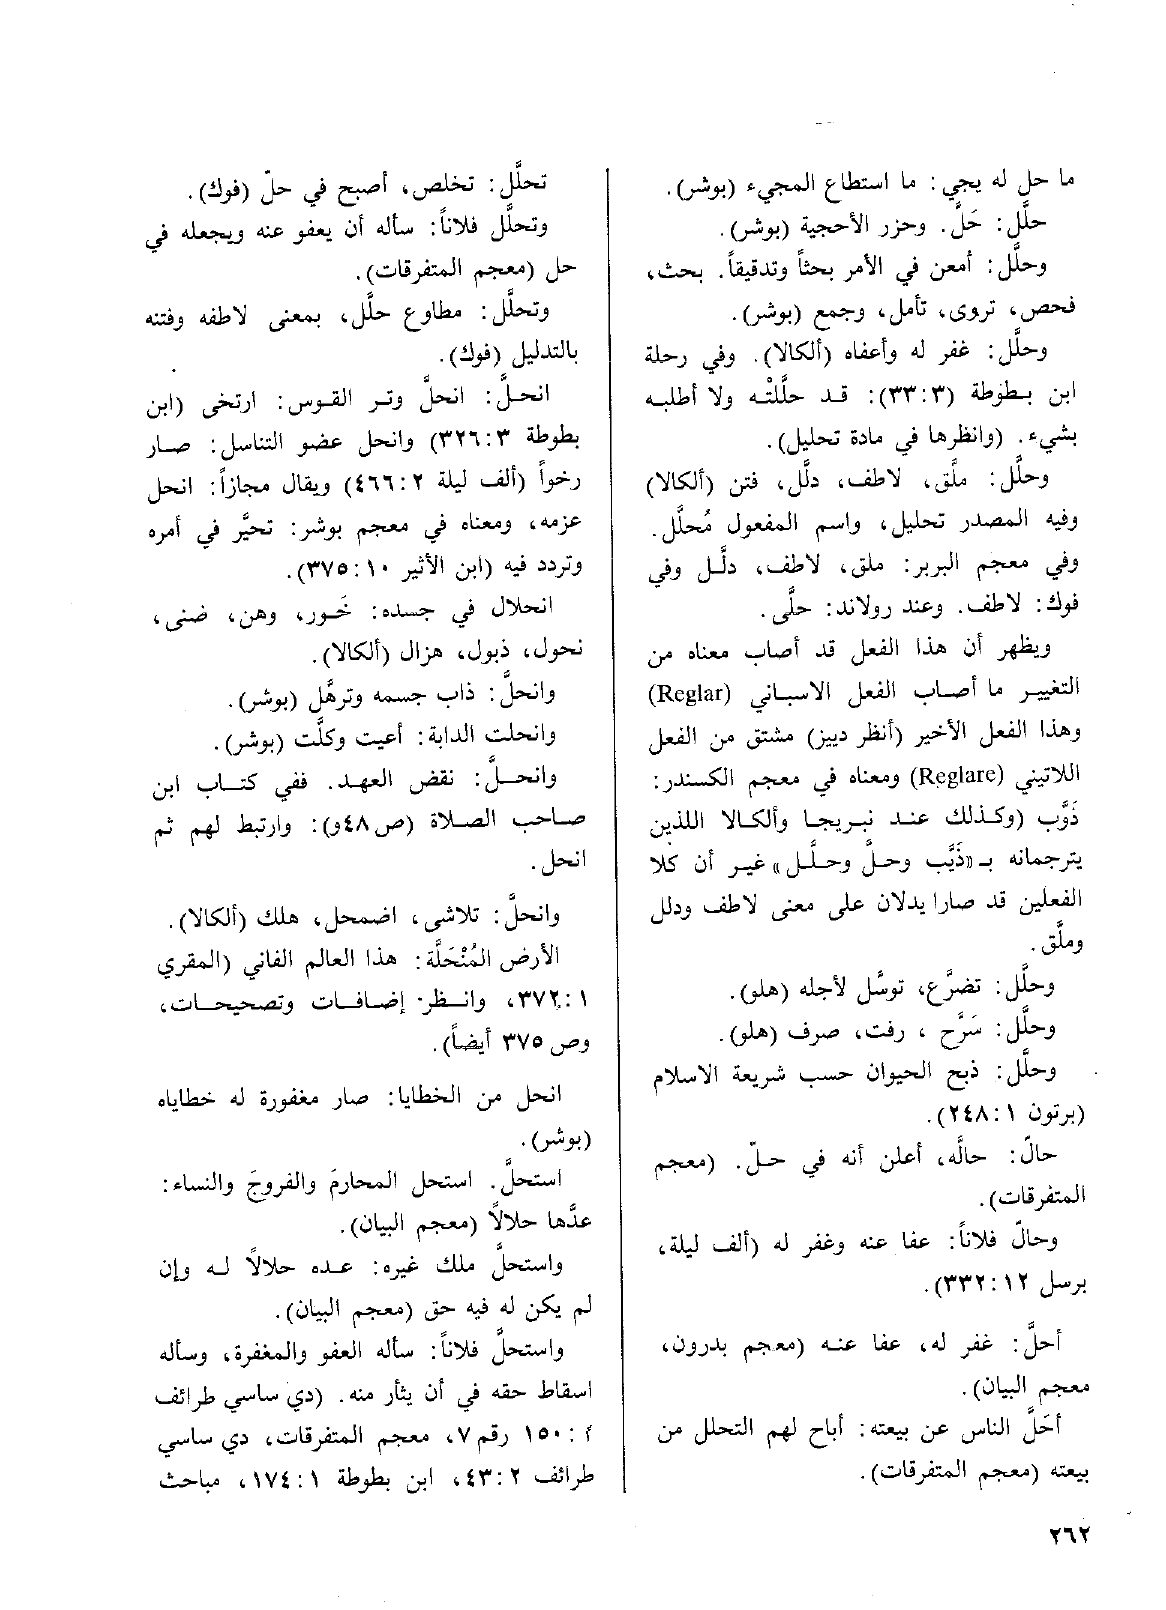 ما حل له يجي: ما استطاع المجيء (بوشر).
حلَّل: حَلَّ. وحزر الأحجية (بوشر).
وحلَّل: أمعن في الأمر بحثاً وتدقيقاً. بحث،
فحص، تروى، تأمل، وجمع (بوشر).
وحلَّل: غفر له وأعفاه (ألكالا). وفي رحلة
ابن بطوطة (٣: ٣٣): قد حلَّلْته ولا أطلبه
بشيء. (وانظرها في مادة تحليل).
وحلَّل: ملَّق، لاطف، دلَّل، فتن (ألكالا)
وفيه المصدر تحليل، واسم المفعول مُحلَّل.
وفي معجم البربر: ملق، لاطف، دلَّل وفي
فوك: لاطف. وعند رولاند: حلَّى.
ويظهر أن هذا الفعل قد أصاب معناه من
التغيير ما أصاب الفعل الاسباني (Reglar)
وهذا الفعل الأخير (أنظر دييز) مشتق من الفعل
اللاتيني (Reglare) ومعناه في معجم الكسندر:
ذَوَّب (وكذلك عند نبريجا وألكالا اللذين
يترجمانه بـ «ذَيَّب وحلَّ وحلَّل» غير أن كلا
الفعلين قد صارا يدلان على معنى لاطف ودلل
وملَّق.
وحلَّل: تضرَّع، توسَّل لأجله (هلو).
وحلَّل: سَرَّح ، رفت، صرف (هلو).
وحلَّل: ذبح الحيوان حسب شريعة الاسلام
(برتون ١: ٢٤٨).
حالّ: حالَّه، أعلن أنه في حلّ. (معجم
المتفرقات).
وحالّ فلاناً: عفا عنه وغفر له (ألف ليلة،
برسل ١٢: ٣٣٢).
أحلَّ: غفر له، عفا عنه (معجم بدرون،
معجم البيان).
أحَلَّ الناس عن بيعته: أباح لهم التحلل من
بيعته (معجم المتفرقات).
تحلَّل: تخلص، أصبح في حلّ (فوك).
وتحلَّل فلاناً: سأله أن يعفو عنه ويجعله في
حل (معجم المتفرقات).
وتحلَّل: مطاوع حلَّل، بمعنى لاطفه وفتنه
بالتدليل (فوك).
انحلَّ: انحلَّ وتر القوس: ارتخى (ابن
بطوطة ٣: ٣٢٦) وانحل عضو التناسل: صار
رخواً (ألف ليلة ٢: ٤٦٦) ويقال مجازاً: انحل
عزمه، ومعناه في معجم بوشر: تحيَّر في أمره
وتردد فيه (ابن الأثير ١٠: ٣٧٥).
انحلال في جسده: خَور، وهن، ضنى،
نحول، ذبول، هزال (ألكالا).
وانحلَّ: ذاب جسمه وترهَّل (بوشر).
وانحلت الدابة: أعيت وكلَّت (بوشر).
وانحلَّ: نقض العهد. ففي كتاب ابن
صاحب الصلاة (ص٤٨و): وارتبط لهم ثم
انحل.
وانحلَّ: تلاشى، اضمحل، هلك (ألكالا).
الأرض المُنْحَلَّة: هذا العالم الفاني (المقري
١: ٣٧٢، وانظر إضافات وتصحيحات،
وص ٣٧٥ أيضاً).
انحل من الخطايا: صار مغفورة له خطاياه
(بوشر).
استحلَّ. استحل المحارمَ والفروجَ والنساء:
عدَّها حلالاً (معجم البيان).
واستحلَّ ملك غيره: عده حلالاً له وإن
لم يكن له فيه حق (معجم البيان).
واستحلَّ فلاناً: سأله العفو والمغفرة، وسأله
اسقاط حقه في أن يثأر منه. (دي ساسي طرائف
: ١٥٠ رقم ٧، معجم المتفرقات، دي ساسي
طرائف ٢: ٤٣، ابن بطوطة ١: ١٧٤، مباحث
٢٦٢